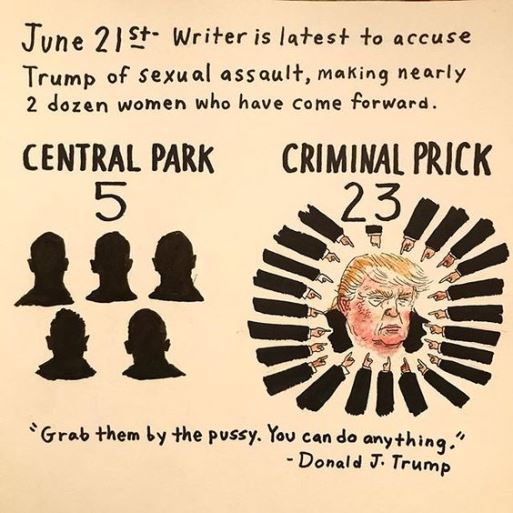 June 21st- Writer is latest to accuse
Trump of sexual assault, making nearly
2 dozen women who have come forward.
CENTRAL PARK
5
CRIMINAL PRICK
23
"Grab them by the pussy. You can do anything."
- Donald J. Trump